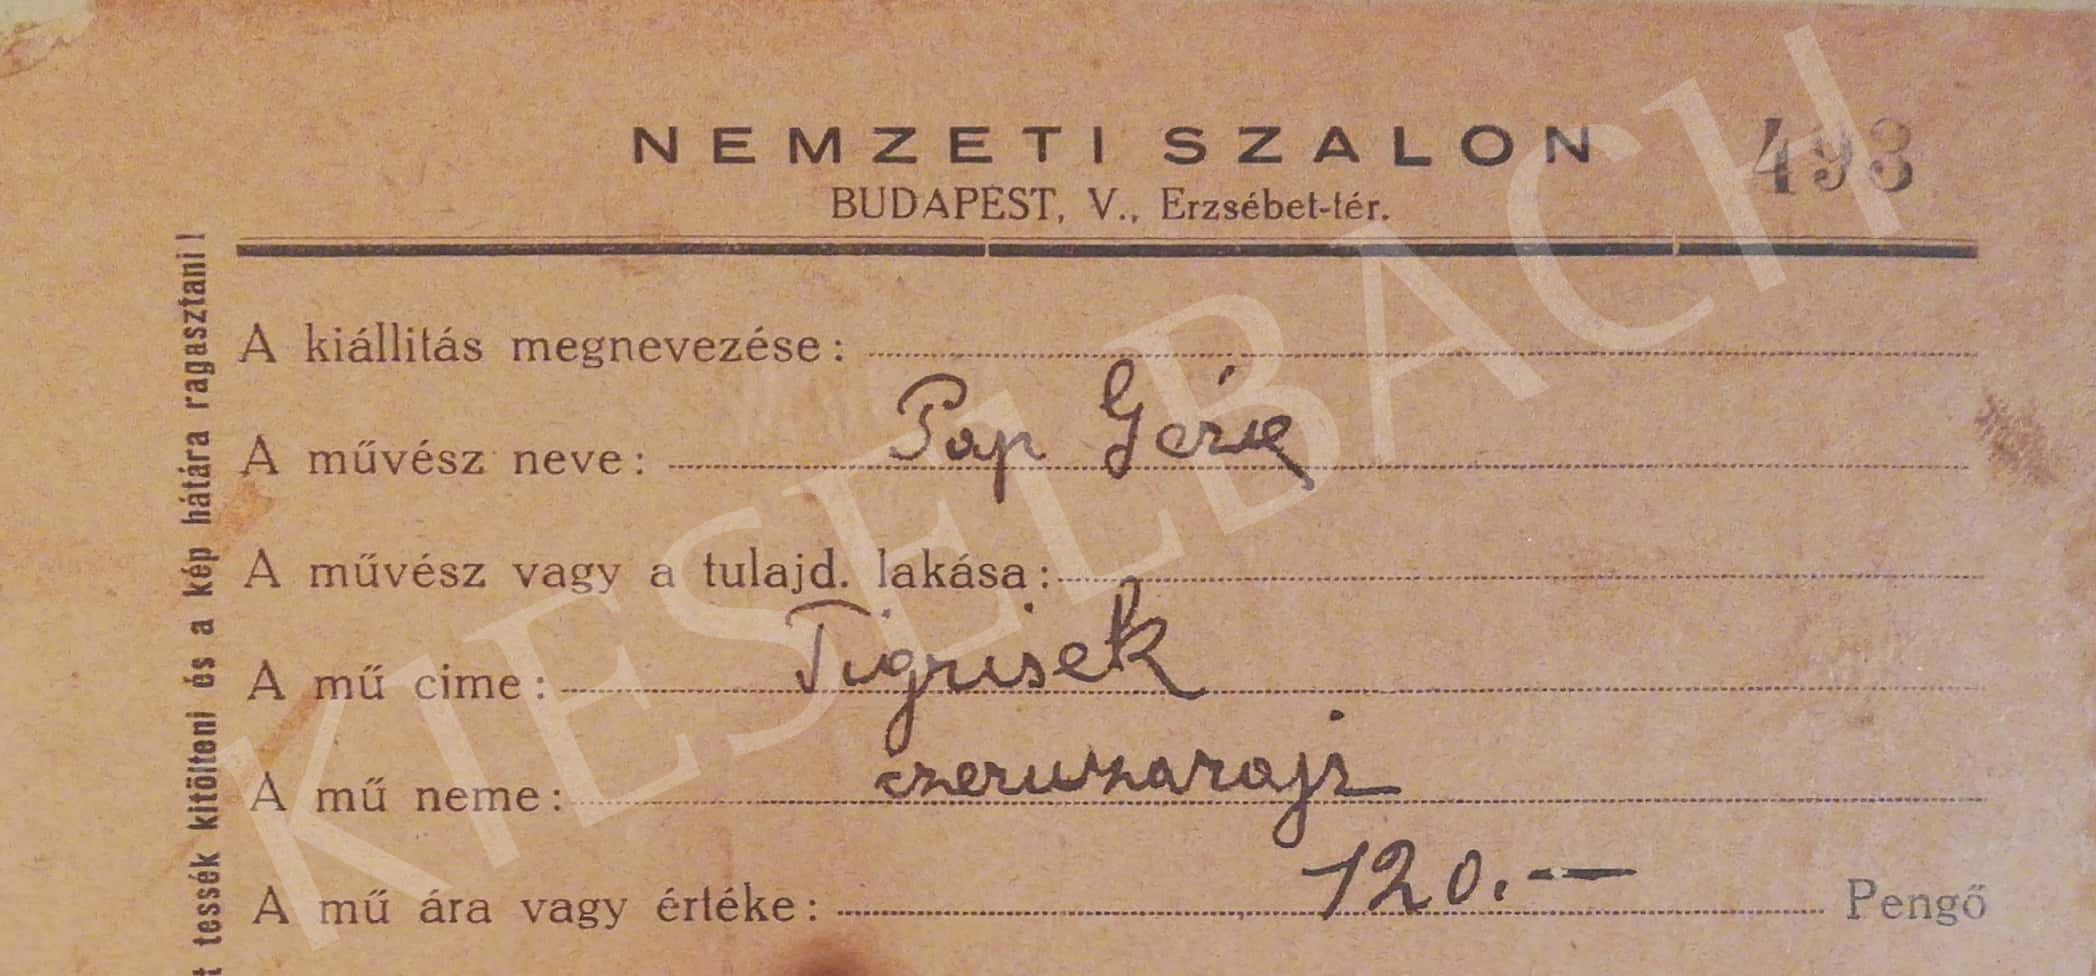 NEMZETI SZALON 493
BUDAPEST, V., Erzsébet-tér.
A kiállitás megnevezése:
A művész neve: Pap Géza
A művész vagy a tulajd. lakása:
A mű cime: Tigrisek
A mű neme: czeruzarajz
A mű ára vagy értéke: 120.— Pengő
t tessék kitölteni és a kép hátára ragasztani!
KIESELBACH